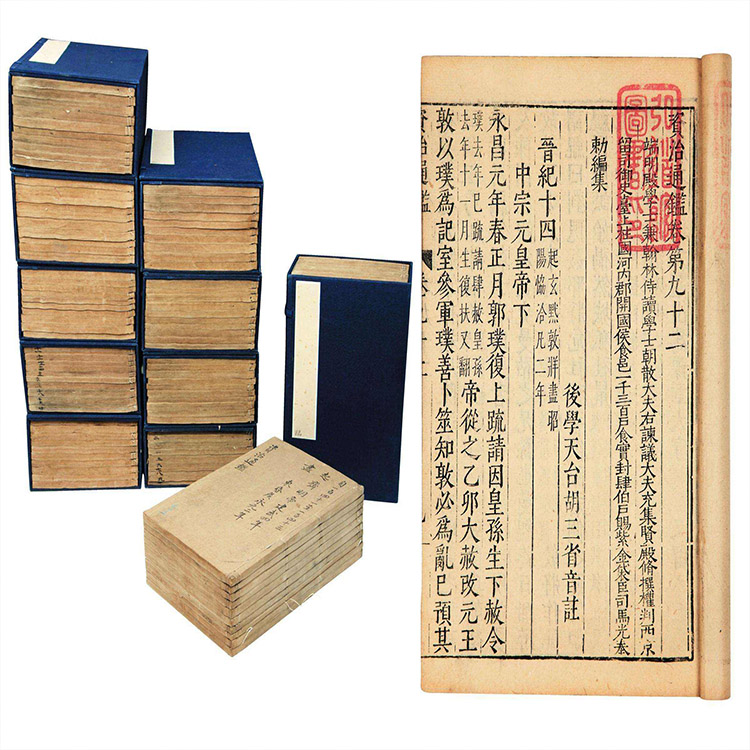 資治通鑑卷第九十二
端明殿學士兼翰林侍讀學士朝散大夫右諫議大夫充集賢殿修撰權判西京
留司御史臺上柱國河內郡開國侯食邑一千三百戶食實封肆伯戶賜紫金袋臣司馬光奉
勅編集
後學天台胡三省音註
晉紀十四 起玄黓敦牂盡昭陽恊洽凡二年
中宗元皇帝下
永昌元年春正月郭璞復上疏請因皇孫生下赦令
璞去年已疏請肆赦皇孫去年十一月生復扶又翻 帝從之乙卯大赦改元王
敦以璞爲記室參軍璞善卜筮知敦必爲亂已預其
資治通鑑